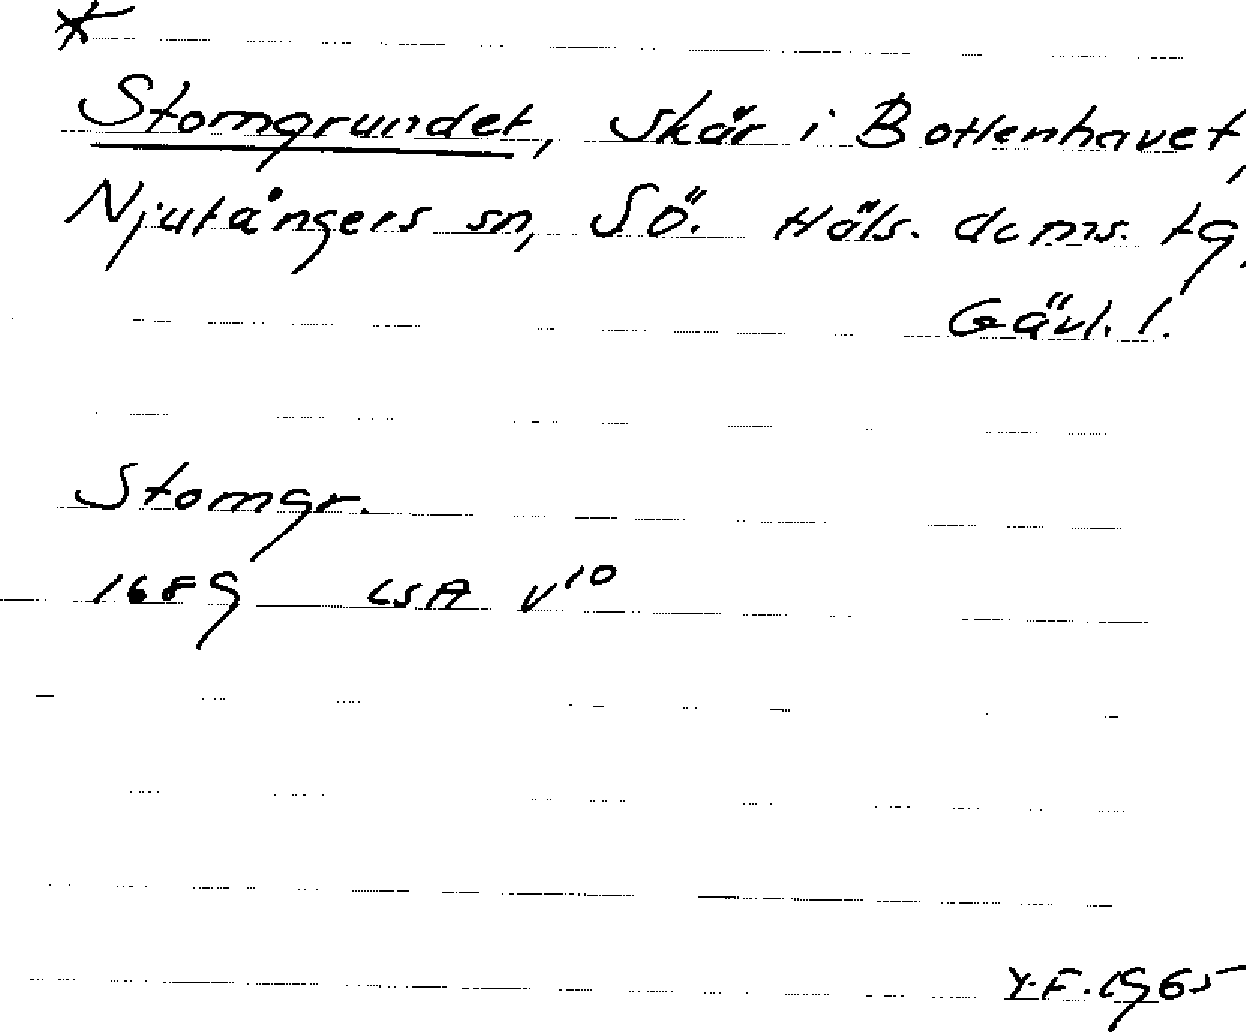 *
Stomgrundet, skär i Bottenhavet,
Njutångers sn, Sö. Häls. doms. tg.
Gävl. l.
Stomgr.
1689 LSA V 10
Y.F. 1965